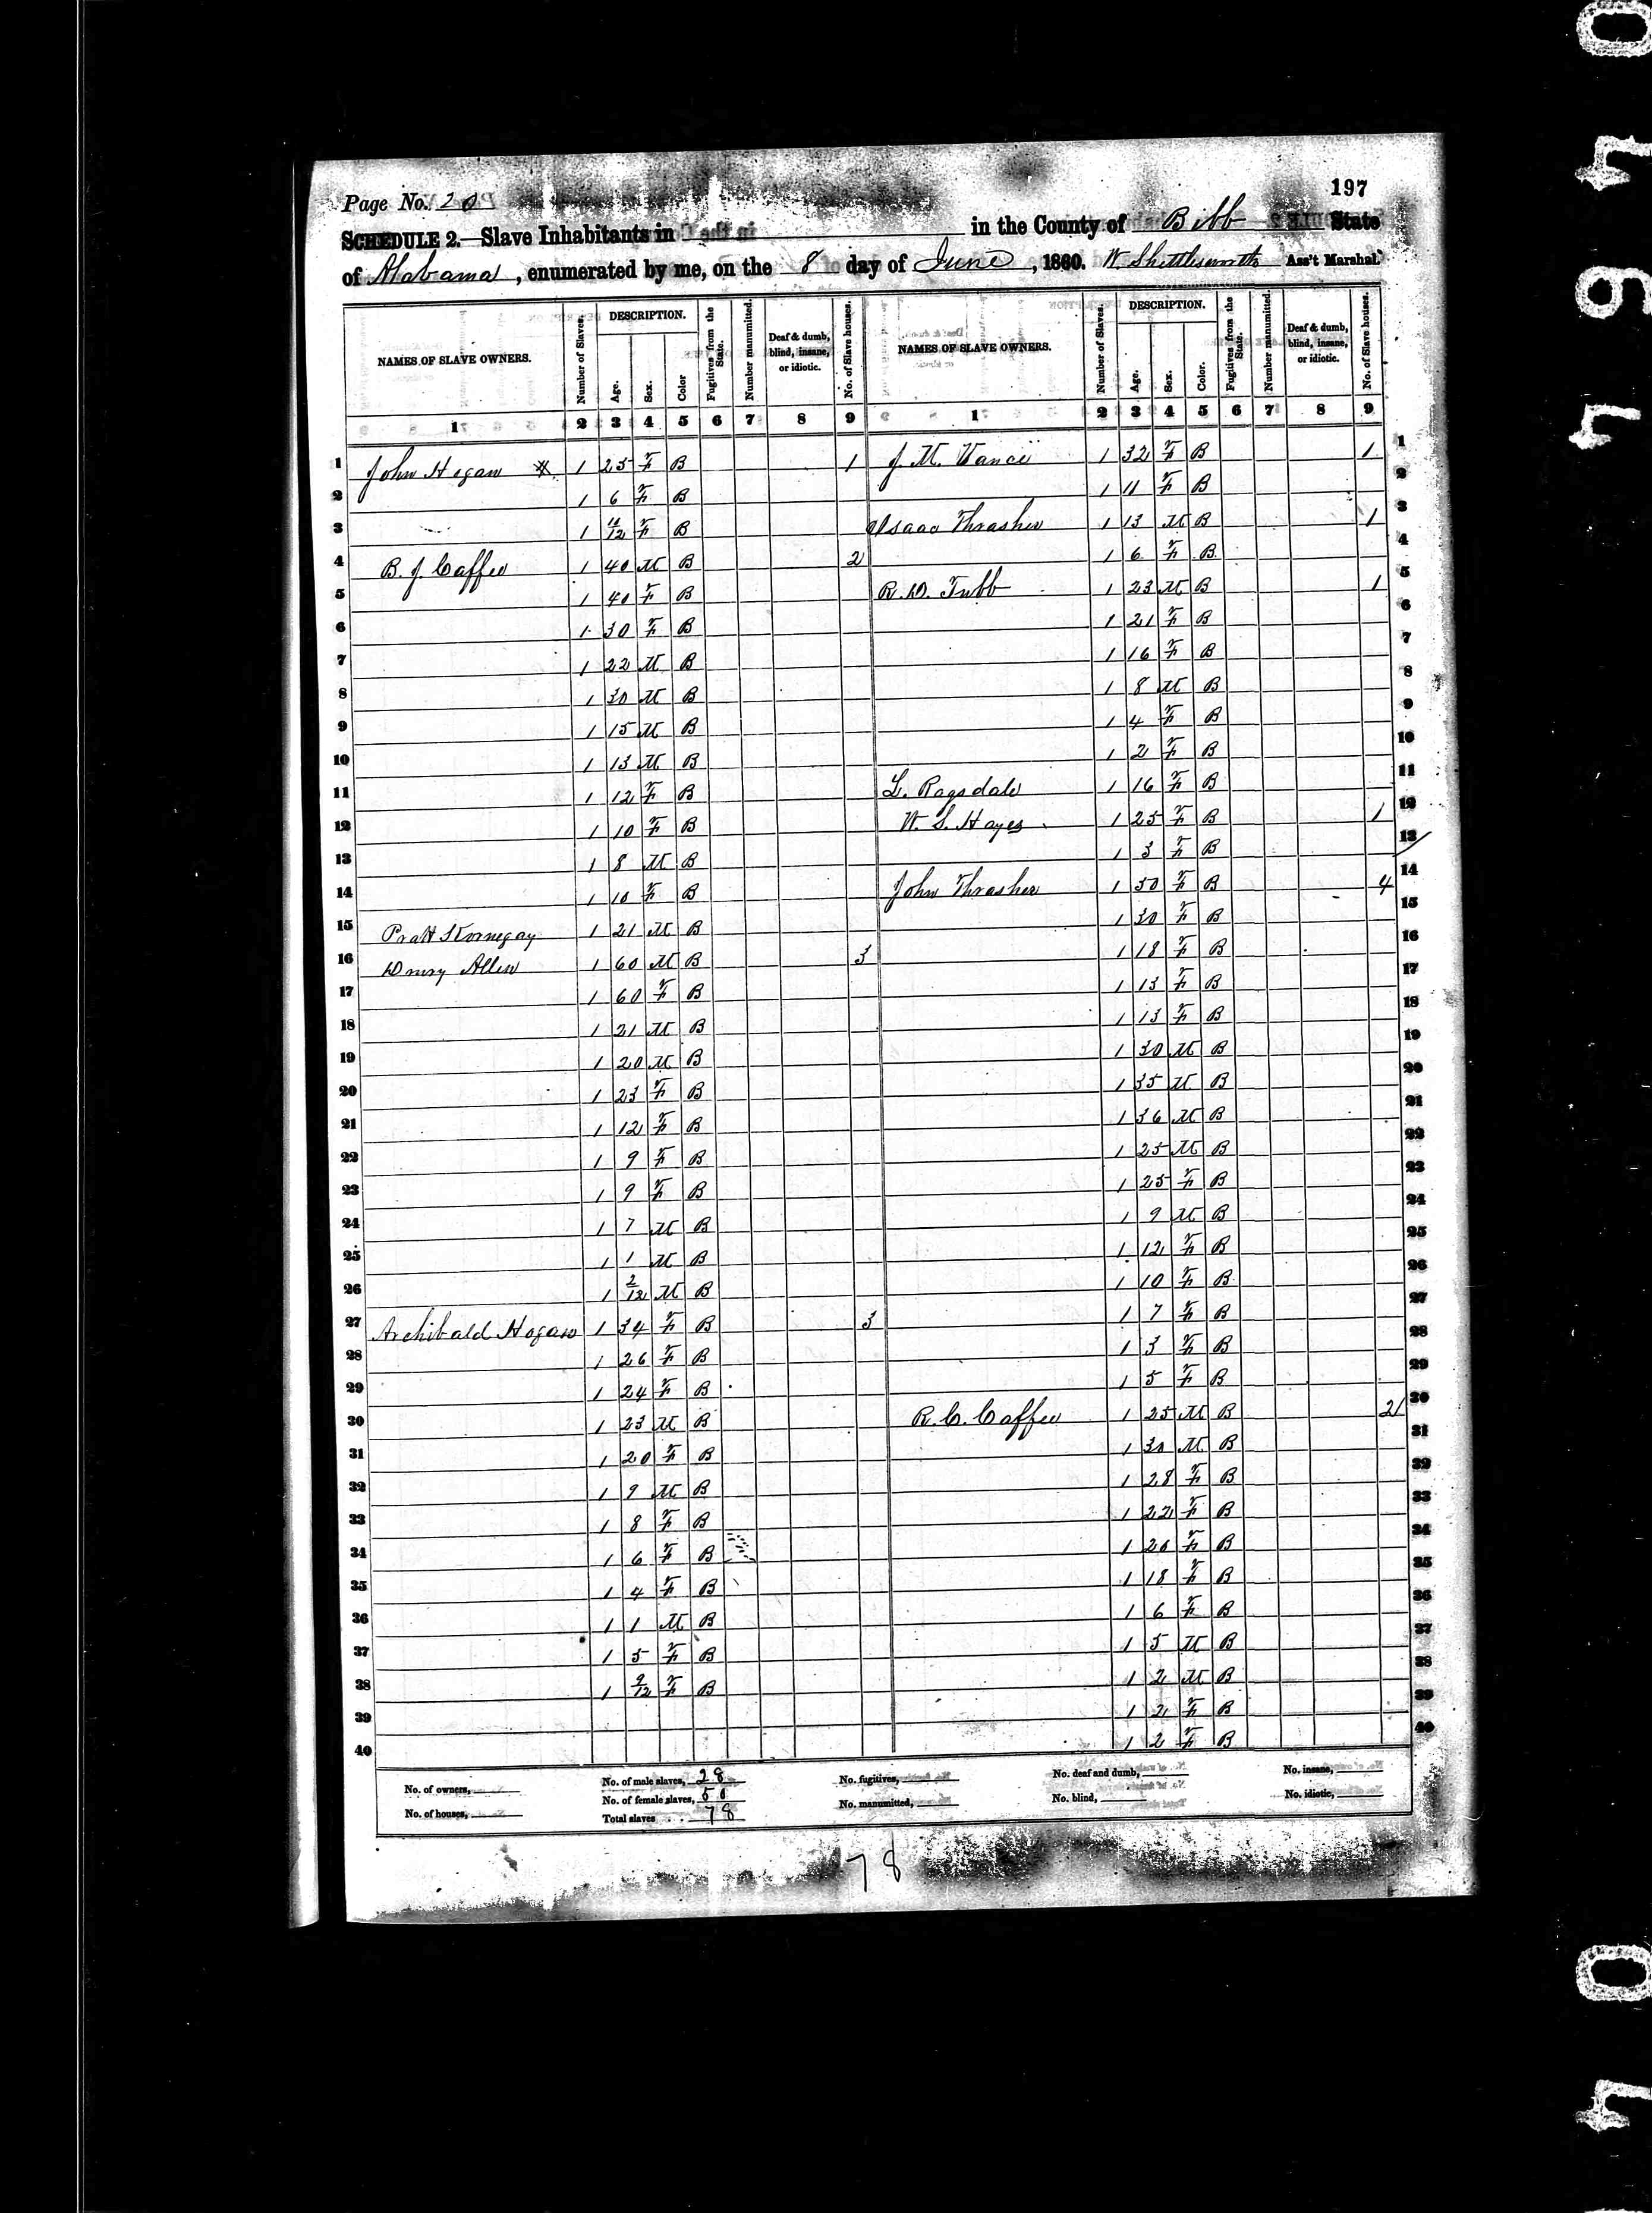 Page No. 20
197
SCHEDULE 2.—Slave Inhabitants in in the County of Bibb State
of Alabama, enumerated by me, on the 8 day of June, 1860. W Shettlesworth Ass't Marshal.
NAMES OF SLAVE OWNERS. Number of Slaves. DESCRIPTION. Age. Sex. Color Fugitives from the State. Number manumitted. Deaf & dumb, blind, insane, or idiotic. No. of Slave houses. NAMES OF SLAVE OWNERS. Number of Slaves. DESCRIPTION. Age. Sex. Color. Fugitives from the State. Number manumitted. Deaf & dumb, blind, insane, or idiotic. No. of Slave houses.
1 2 3 4 5 6 7 8 9 1 2 3 4 5 6 7 8 9
1 John Hogan 1 25 F B 1 J. M. Vance 1 32 F B 1 1
2 1 6 F B 1 11 F B 2
3 1 11/12 F B Isaac Thrasher 1 13 M B 1 3
4 B. J. Caffee 1 40 M B 2 1 6 F B 4
5 1 40 F B R. D. Tubb 1 23 M B 1 5
6 1 30 F B 1 21 F B 6
7 1 22 M B 1 16 F B 7
8 1 30 M B 1 8 M B 8
9 1 15 M B 1 4 F B 9
10 1 13 M B 1 2 F B 10
11 1 12 F B L. Ragsdale 1 16 F B 11
12 1 10 F B W. S. Hayes 1 25 F B 1 12
13 1 8 M B 1 3 F B 13
14 1 10 F B John Thrasher 1 50 F B 4 14
15 Pratt Kornegay 1 21 M B 1 30 F B 15
16 Drury Allen 1 60 M B 3 1 18 F B 16
17 1 60 F B 1 13 F B 17
18 1 21 M B 1 13 F B 18
19 1 20 M B 1 30 M B 19
20 1 23 F B 1 35 M B 20
21 1 12 F B 1 36 M B 21
22 1 9 F B 1 25 M B 22
23 1 9 F B 1 25 F B 23
24 1 7 M B 1 9 M B 24
25 1 1 M B 1 12 F B 25
26 1 2/12 M B 1 10 F B 26
27 Archibald Hogan 1 34 F B 3 1 7 F B 27
28 1 26 F B 1 3 F B 28
29 1 24 F B 1 5 F B 29
30 1 23 M B R. C. Caffee 1 25 M B 2 30
31 1 20 F B 1 30 M B 31
32 1 9 M B 1 28 F B 32
33 1 8 F B 1 22 F B 33
34 1 6 F B 1 20 F B 34
35 1 4 F B 1 18 F B 35
36 1 1 M B 1 6 F B 36
37 1 5 F B 1 5 M B 37
38 1 9/12 F B 1 2 M B 38
39 1 2 F B 39
40 1 2 F B 40
No. of owners, No. of male slaves, 28 No. fugitives, No. deaf and dumb, No. insane,
No. of houses, No. of female slaves, 50 No. manumitted, No. blind, No. idiotic,
Total slaves 78
78